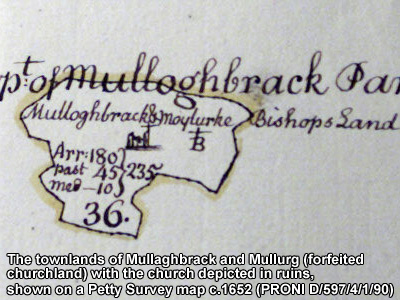 pt. of Mulloghbrack Par
Mulloghbrack & Moylurke Bishops Land
B
Arr: 180
past 45 235
med – 10
36.
The townlands of Mullaghbrack and Mullurg (forfeited
churchland) with the church depicted in ruins,
shown on a Petty Survey map c.1652 (PRONI D/597/4/1/90)